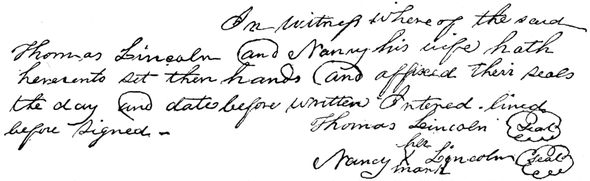 In witness where of the said
Thomas Lincoln and Nancy his wife hath
hereunto set then hands and affixed their seals
the day and date before written Intered.lined
before signed.-
Thomas Lincoln Seal
her
Nancy X Lincoln Seal
mark